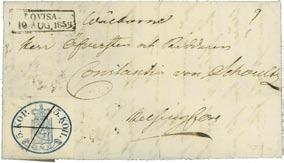 LOVISA.
10 AUG. 1856
Wälborne
Herr Öfversten och Riddaren
Constantin von Schoultz
Helsingfors
5. KOP. 5. KOP.